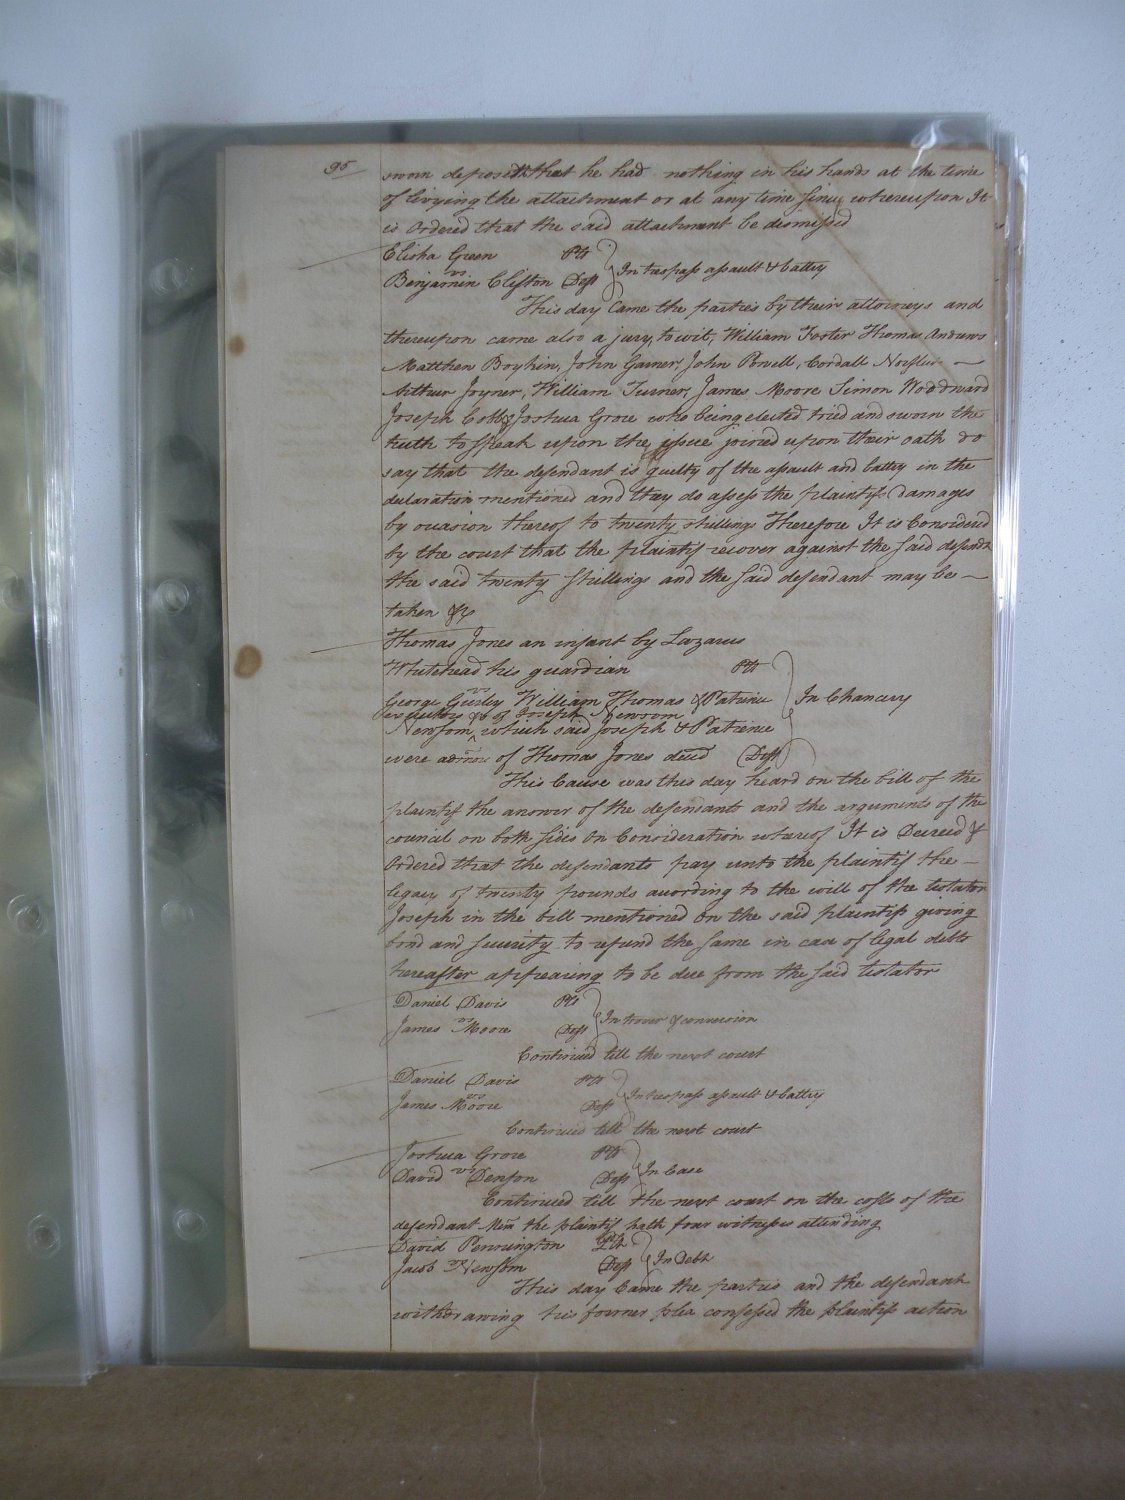 95
sworn deposeth that he had nothing in his hands at the time
of levying the attachment or at any time since whereupon It
is Ordered that the said attachment be dismissed
Elisha Green Plt
vs
Benjamin Clifton Deft } In trespass assault & battry
This day Came the parties by their attorneys and
thereupon came also a jury, to wit, William Foster Thomas Andrews
Matthew Boykin, John Garner, John Powell, Cordall Norfler
Arthur Joyner, William Turner, James Moore Simon Woodward
Joseph Cobb & Joshua Grove who being elected tried and sworn the
truth to speak upon the issue joined upon their oath do
say that the defendant is guilty of the assault and battry in the
declaration mentioned and they do assess the plaintifs damages
by occasion thereof to twenty shillings Therefore It is Considered
by the court that the plaintif recover against the said defendt
the said twenty shillings and the said defendant may be
taken &c
Thomas Jones an infant by Lazarus
Whitehead his guardian Plt
vs
George Gurley William Thomas & Patience } In Chancery
Executors &c of Joseph Newsom
Newsom, which said Joseph & Patience
were admors of Thomas Jones decd Deft
This Cause was this day heard on the bill of the
plaintif the answer of the defendants and the arguments of the
council on both sides On Consideration whereof It is Decreed &
Ordered that the defendants pay unto the plaintif the
legacy of twenty pounds according to the will of the testator
Joseph in the bill mentioned On the said plaintifs giving
bond and security to refund the same in case of legal debts
hereafter appearing to be due from the said testator
Daniel Davis Plt
vs
James Moore Deft } In trover & conversion
Continued till the next court
Daniel Davis Plt
vs
James Moore Deft } In trespass assault & battry
Continued till the next court
Joshua Grove Plt
vs
David Denson Deft } In Case
Continued till the next court on the costs of the
defendant Mem the plaintif hath four witnesses attending
David Pennington Plt
vs
Jacob Newsom Deft } In Debt
This day Came the parties and the defendant
withdrawing his former plea confessed the plaintifs action